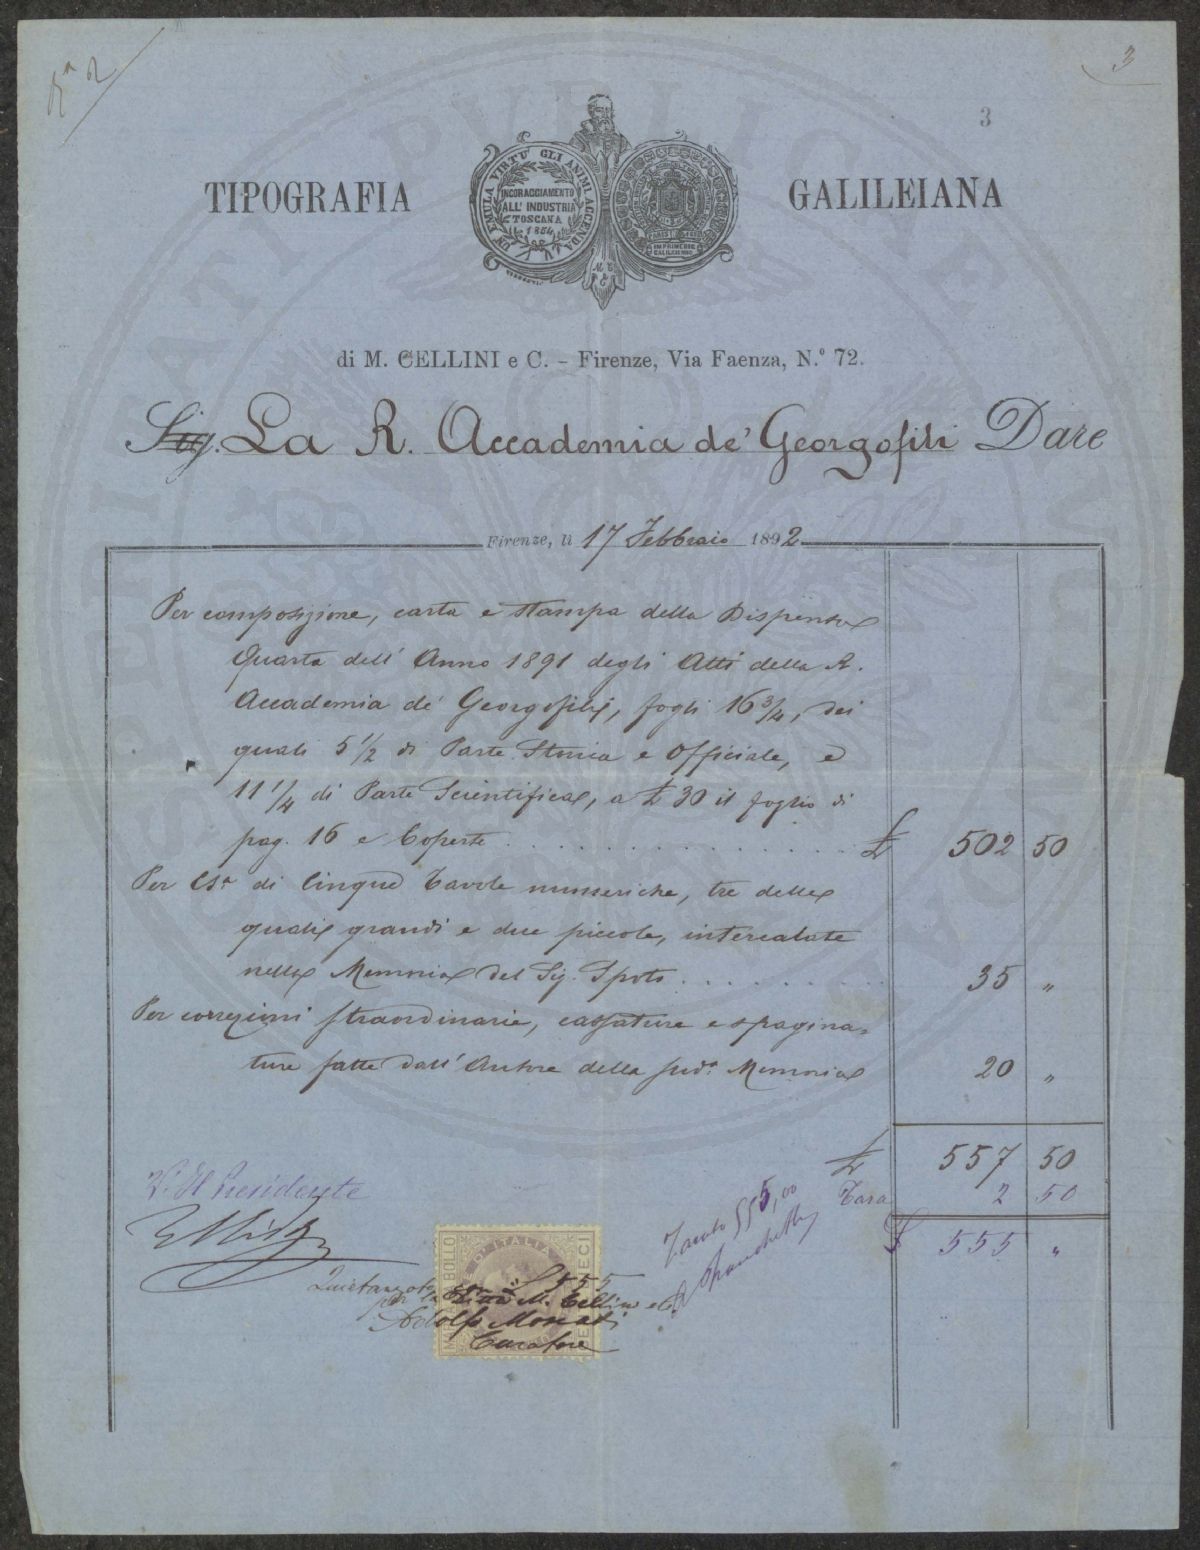 3
3
TIPOGRAFIA GALILEIANA
UN EMULA VIRTÙ GLI ANIMI ACCENDA
INCORAGGIAMENTO
ALL' INDUSTRIA
TOSCANA
1854
IMPRIMERIE
GALILEIENNE
di M. CELLINI e C. – Firenze, Via Faenza, N.° 72.
Sig. La R. Accademia de' Georgofili Dare
Firenze, li 17 Febbraio 1892
Per composizione, carta e stampa della Dispensa
Quarta dell' Anno 1891 degli Atti della R.
Accademia de' Georgofili, fogli 16 3/4, dei
quali 5 1/2 di Parte Storica e Officiale, e
11 1/4 di Parte Scientifica, a £ 30 il foglio di
pag. 16 e Coperte . . . . . . . . . . £ 502 50
Per Csa di Cinque Tavole numeriche, tre delle
quali grandi e due piccole, intercalate
nella Memoria del Sig. . . . . . . . 35 "
Per correzioni straordinarie, cassature e spagina=
ture fatte dall' Autore della sud.a Memoria 20 "
£ 557 50
Tara 2 50
£ 555 "
V. Il Presidente
555,00
MARCA DA BOLLO
D' ITALIA
DIECI
Quietanzato £ 555
per la Ditta M. Cellini e C.
Adolfo Morcati
Curatore